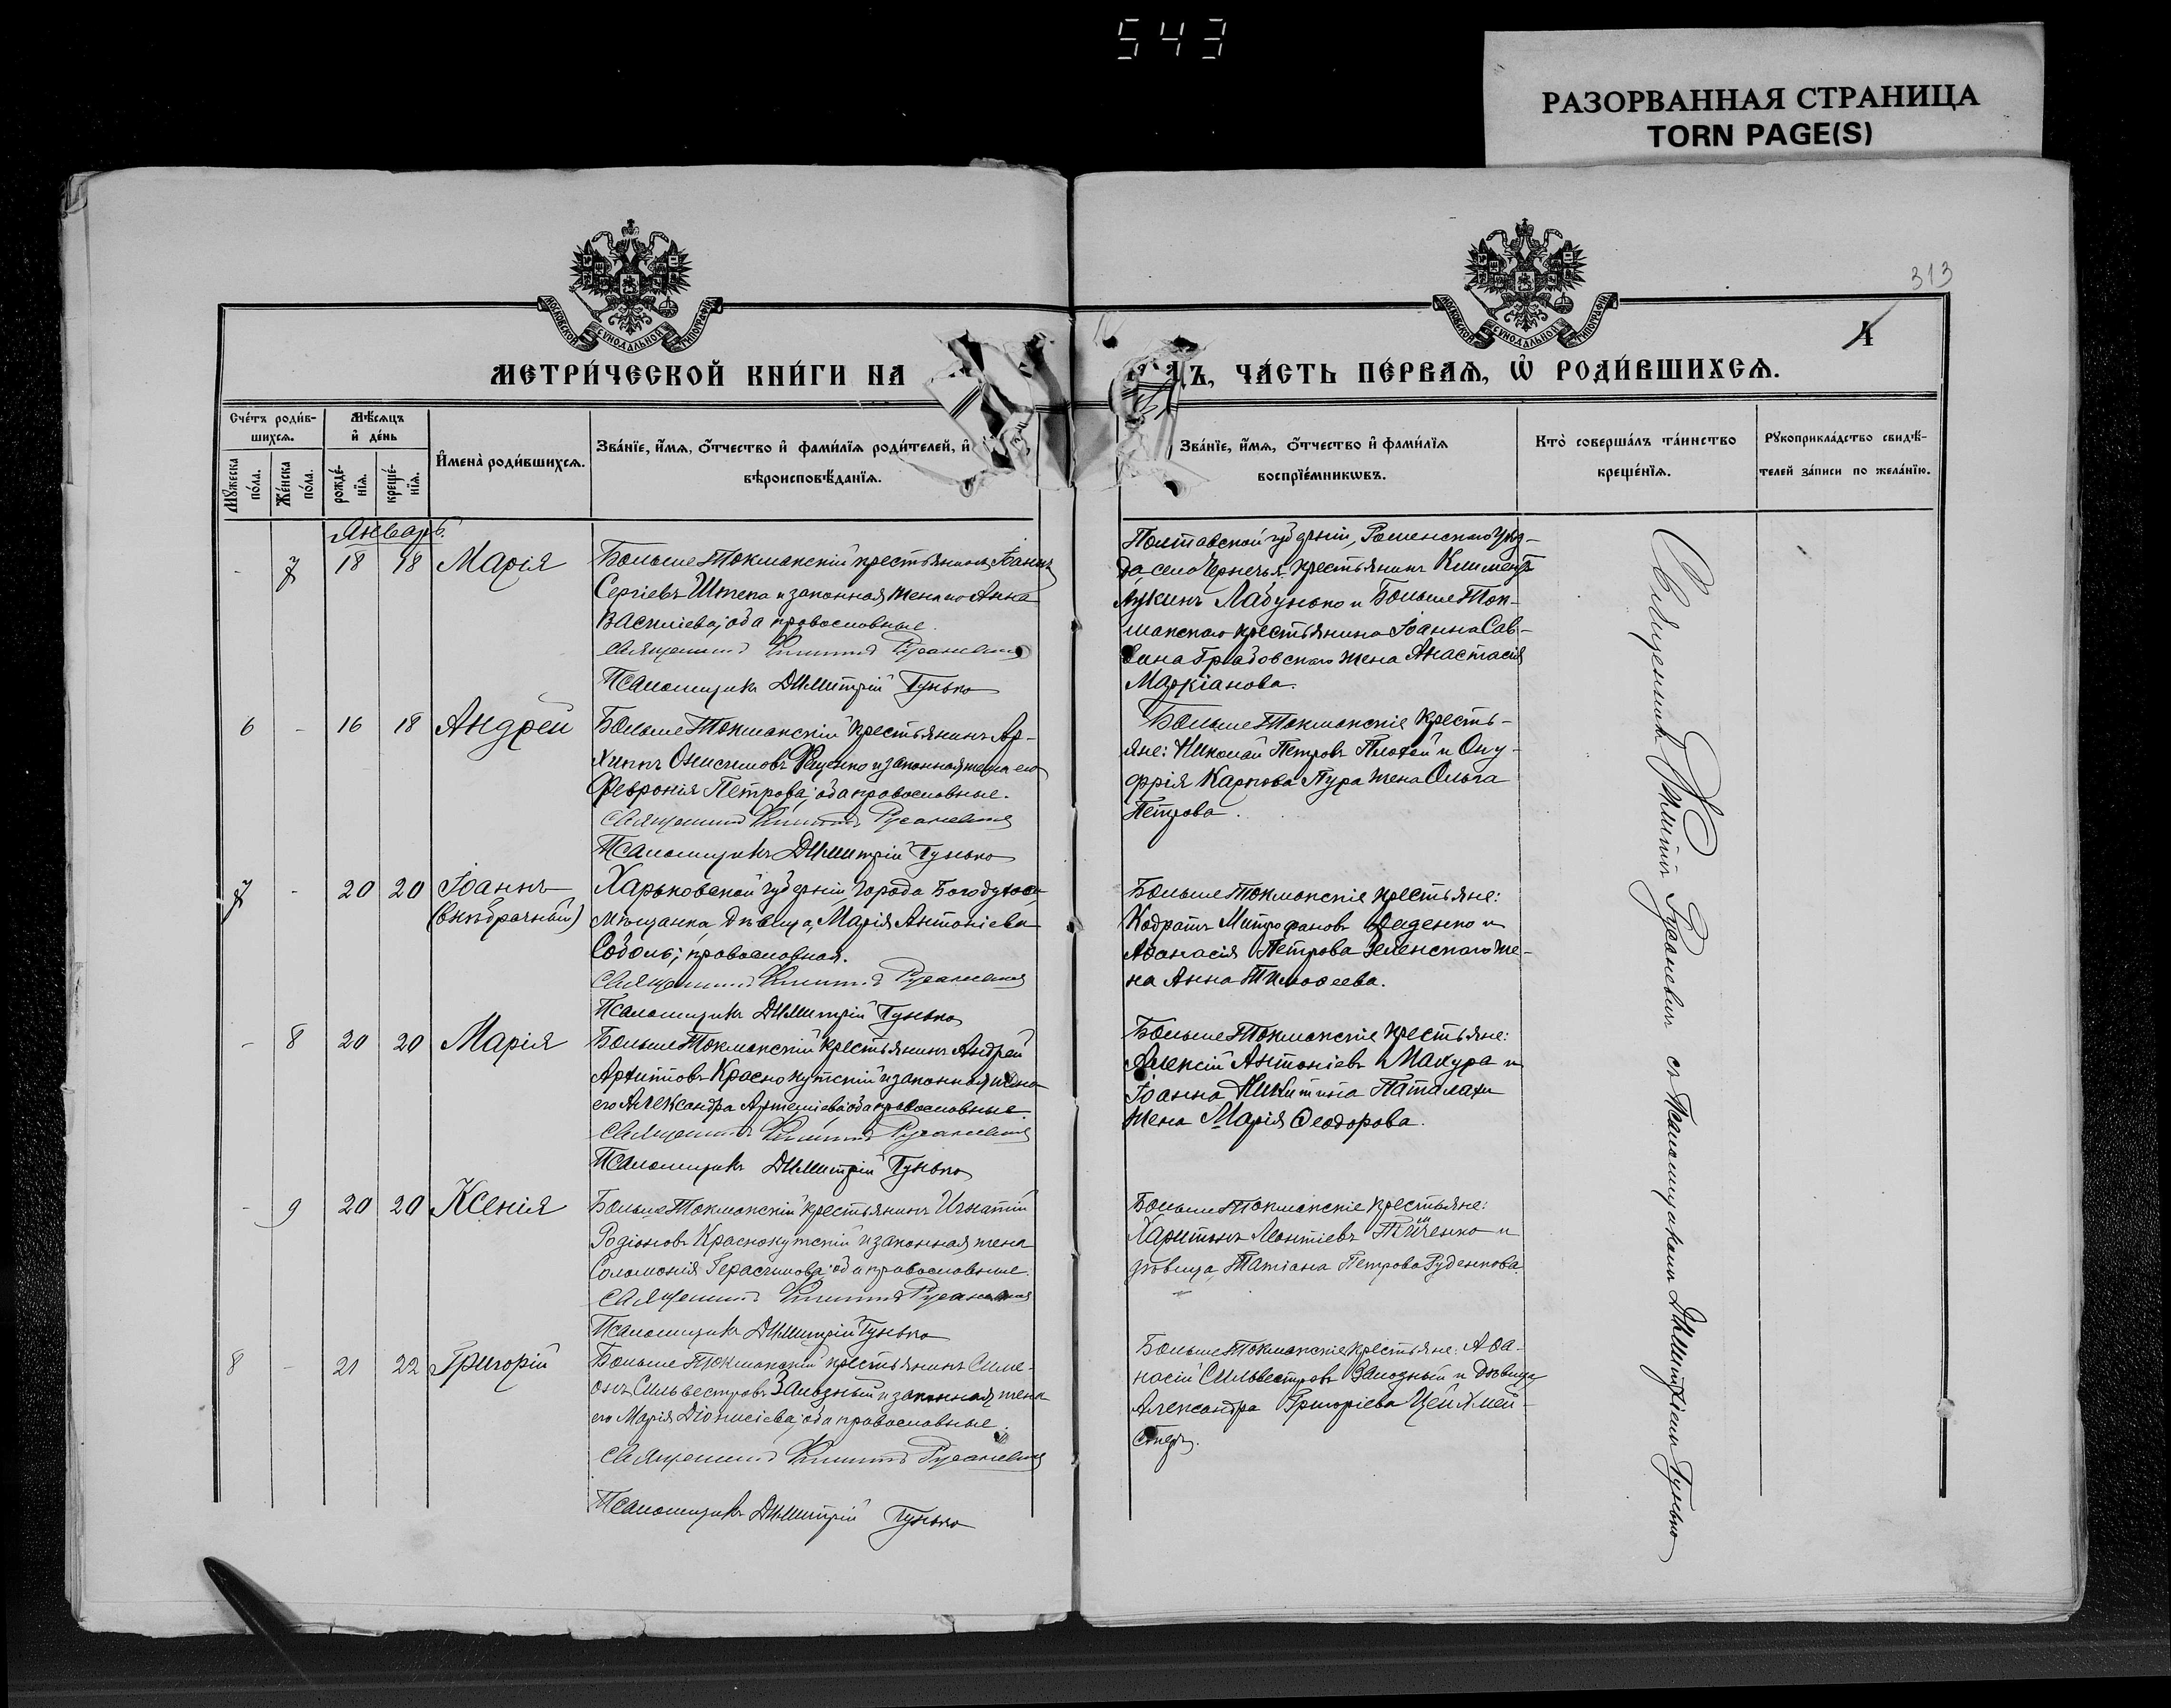 543
РАЗОРВАННАЯ СТРАНИЦА
TORN PAGE(S)
313
4
МОСКОВСКОЙ СѴНОДАЛЬНОЙ ТИПОГРАФІИ
МОСКОВСКОЙ СѴНОДАЛЬНОЙ ТИПОГРАФІИ
МЕТРИ́ЧЕСКОЙ КНИ́ГИ НА
ДЪ, ЧА́СТЬ ПЕ́РВАЯ, Ѡ҆ РОДИ́ВШИХСЯ.
Сче́тъ роди́в-
шихся.
Мѣ́сяцъ
и҆ де́нь
Му́жеска по́ла.
Же́нска по́ла.
рожде́-нїя.
креще́-нїя.
И҆мена̀ роди́вшихся.
Зва́нїе, и҆́мя, о҆́тчество и҆ фами́лїя роди́телей, и҆
вѣроисповѣ́данїя.
Зва́нїе, и҆́мя, о҆́тчество и҆ фами́лїя
воспрїе́мникѡвъ.
Кто̀ соверша́лъ та́инство
креще́нїя.
Рꙋкоприкла́дство свидѣ́-
телей за́писи по жела́нїю.
Январь.
- 7 18 18 Марія
Больше Токмакскій крестьянинъ Іоаннъ
Сергіевъ Штепа и законная жена его Анна
Василіева; оба православные.
Священникъ Климентъ Русаневичъ
Псаломщикъ Димитрій Гунько
Полтавской губерніи, Роменскаго уѣз-
да, село Чернечья крестьянинъ Климентъ
Лукинъ Лабунько и Больше Ток-
макскаго крестьянина Іоанна Сав-
вина Грабовскаго жена Анастасія
Маркіанова.
6 - 16 18 Андрей
Больше Токмакскій крестьянинъ Ар-
хиппъ Онисимовъ Фаценко и законная жена его
Февронія Петрова; оба православные.
Священникъ Климентъ Русаневичъ
Псаломщикъ Димитрій Гунько
Больше Токмакскіе кресть-
яне: Николай Петровъ Плохой и Ону-
фрія Карпова Пура жена Ольга
Петрова.
7 - 20 20 Іоаннъ
(внѣбрачный)
Харьковской губерніи, города Богодухова
мѣщанка, дѣвица, Марія Антоніева
Соболь; православная.
Священникъ Климентъ Русаневичъ
Псаломщикъ Димитрій Гунько
Больше Токмакскіе крестьяне:
Кодратъ Митрофановъ Феденко и
Аѳанасія Петрова Зеленскаго же-
на Анна Тимоѳеева.
- 8 20 20 Марія
Больше Токмакскій крестьянинъ Андрей
Архиповъ Краснокутскій и законная жена
его Александра Артеміева; оба православные.
Священникъ Климентъ Русаневичъ
Псаломщикъ Димитрій Гунько
Больше Токмакскіе крестьяне:
Алексій Антоніевъ Макура и
Іоанна Никитина Паталахи
жена Марія Ѳеодорова.
- 9 20 20 Ксенія
Больше Токмакскій крестьянинъ Игнатій
Родіоновъ Краснокутскій и законная жена
Соломонія Герасимова; оба православные.
Священникъ Климентъ Русаневичъ
Псаломщикъ Димитрій Гунько
Больше Токмакскіе крестьяне:
Харитонъ Леонтіевъ и
дѣвица, Татіана Петрова Руденкова.
8 - 21 22 Григорій
Больше Токмакскій крестьянинъ Симе-
онъ Сильвестровъ Залозный и законная жена
его Марія Діонисіева; оба православные.
Священникъ Климентъ Русаневичъ
Псаломщикъ Димитрій Гунько
Больше Токмакскіе крестьяне: Аѳа-
насій Сильвестровъ Залозный и дѣвица
Александра Григоріева Цейхмей-
стеръ.
Священникъ Климентъ Русаневичъ съ Псаломщикомъ Димитріемъ Гунько